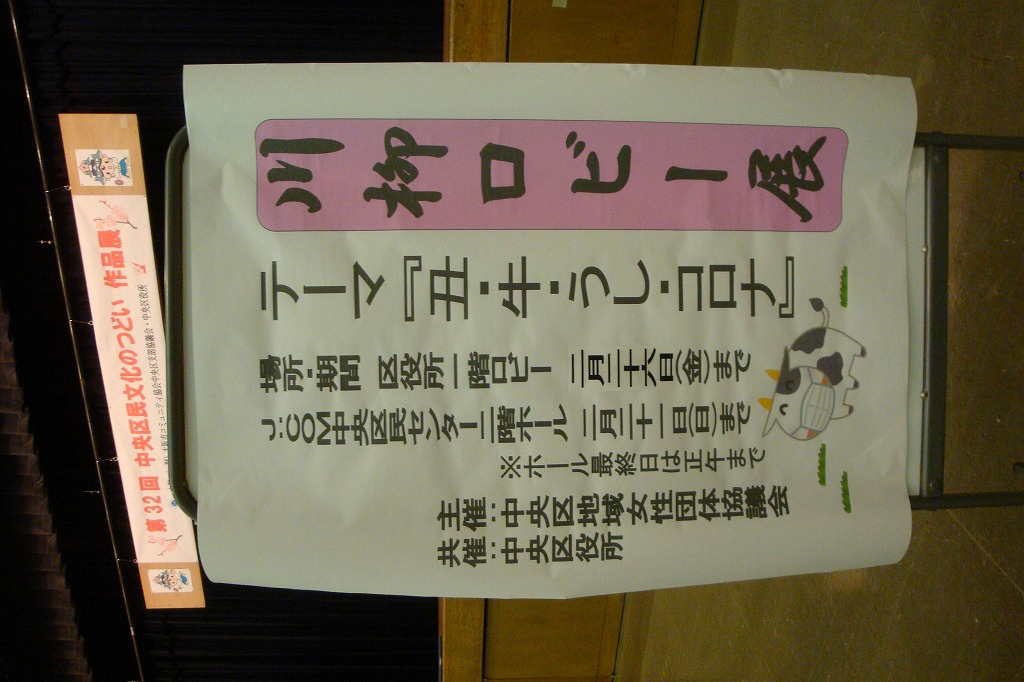 第32回 中央区民文化のつどい 作品展
川柳ロビー展
テーマ『丑・牛・うし・コロナ』
場所・期間 区役所一階ロビー 二月二十六日(金)まで
J:COM中央区民センター二階ホール 二月二十一日(日)まで
※ホール最終日は正午まで
主催:中央区地域女性団体協議会
共催:中央区役所